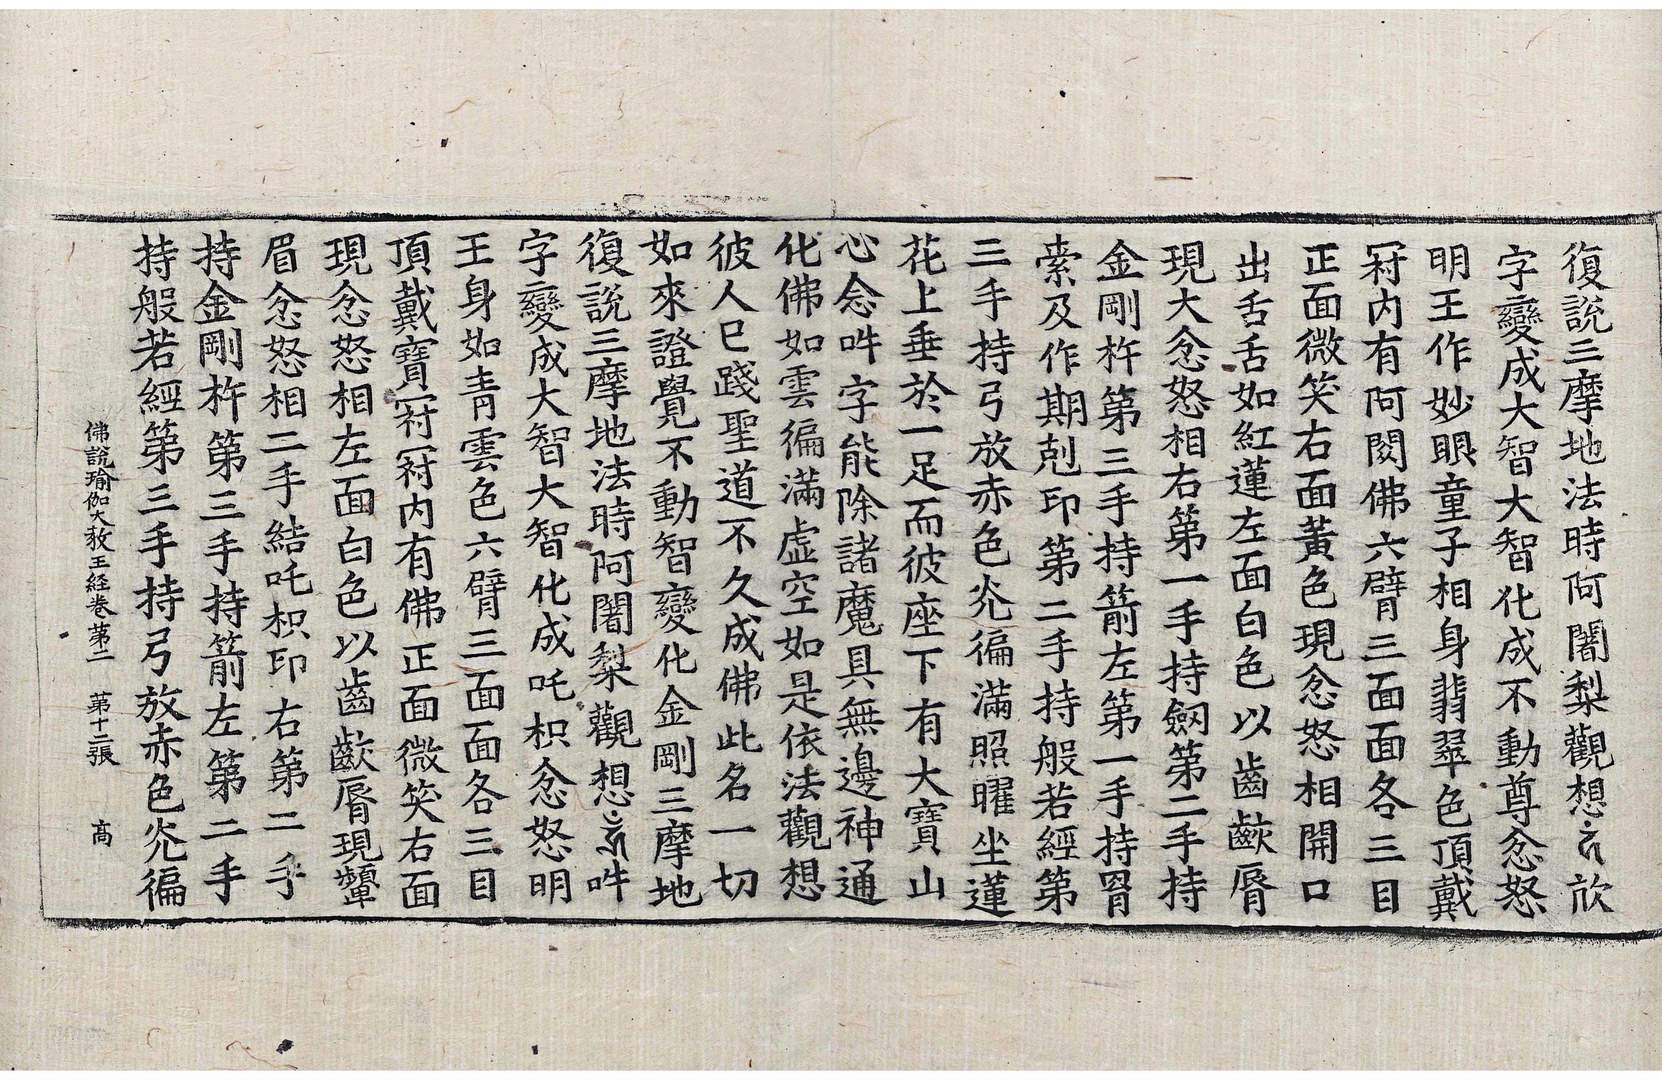 復說三摩地法時阿闍梨觀想𑖮𑖳𑖽㰠
字變成大智大智化成不動尊忿怒
明王作妙眼童子相身翡翠色頂戴
冠內有阿閦佛六臂三面面各三目
正面微笑右面黃色現忿怒相開口
出舌舌如紅蓮左面白色以齒齩脣
現大忿怒相右第一手持劔第二手持
金剛杵第三手持箭左第一手持罥
索及作期剋印第二手持般若經第
三手持弓放赤色光徧滿照曜坐蓮
花上垂於一足而彼座下有大寶山
心念吽字能除諸魔具無邊神通
化佛如雲徧滿虛空如是依法觀想
彼人已踐聖道不久成佛此名一切
如來證覺不動智變化金剛三摩地
復說三摩地法時阿闍梨觀想吽
字變成大智大智化成吒枳忿怒明
王身如青雲色六臂三面面各三目
頂戴寶冠冠內有佛正面微笑右面
現忿怒相左面白色以齒齩脣現顰
眉忿怒相二手結吒枳印右第二手
持金剛杵第三手持箭左第二手
持般若經第三手持弓放赤色光徧
佛說瑜伽大教王經卷第二　第十二張　高